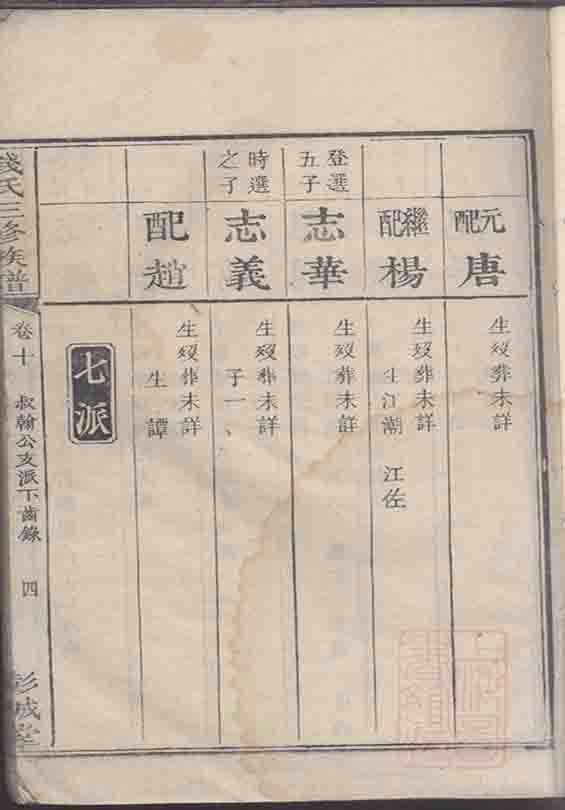 元配唐
生歿葬未詳
繼配楊
生歿葬未詳
生江潮 江佐
登選五子
志華
生歿葬未詳
時選之子
志義
生歿葬未詳
子一、
配趙
生歿葬未詳
生譚
七派
錢氏三修族譜
卷十 叔翰公支派下齒錄 四
彭城堂